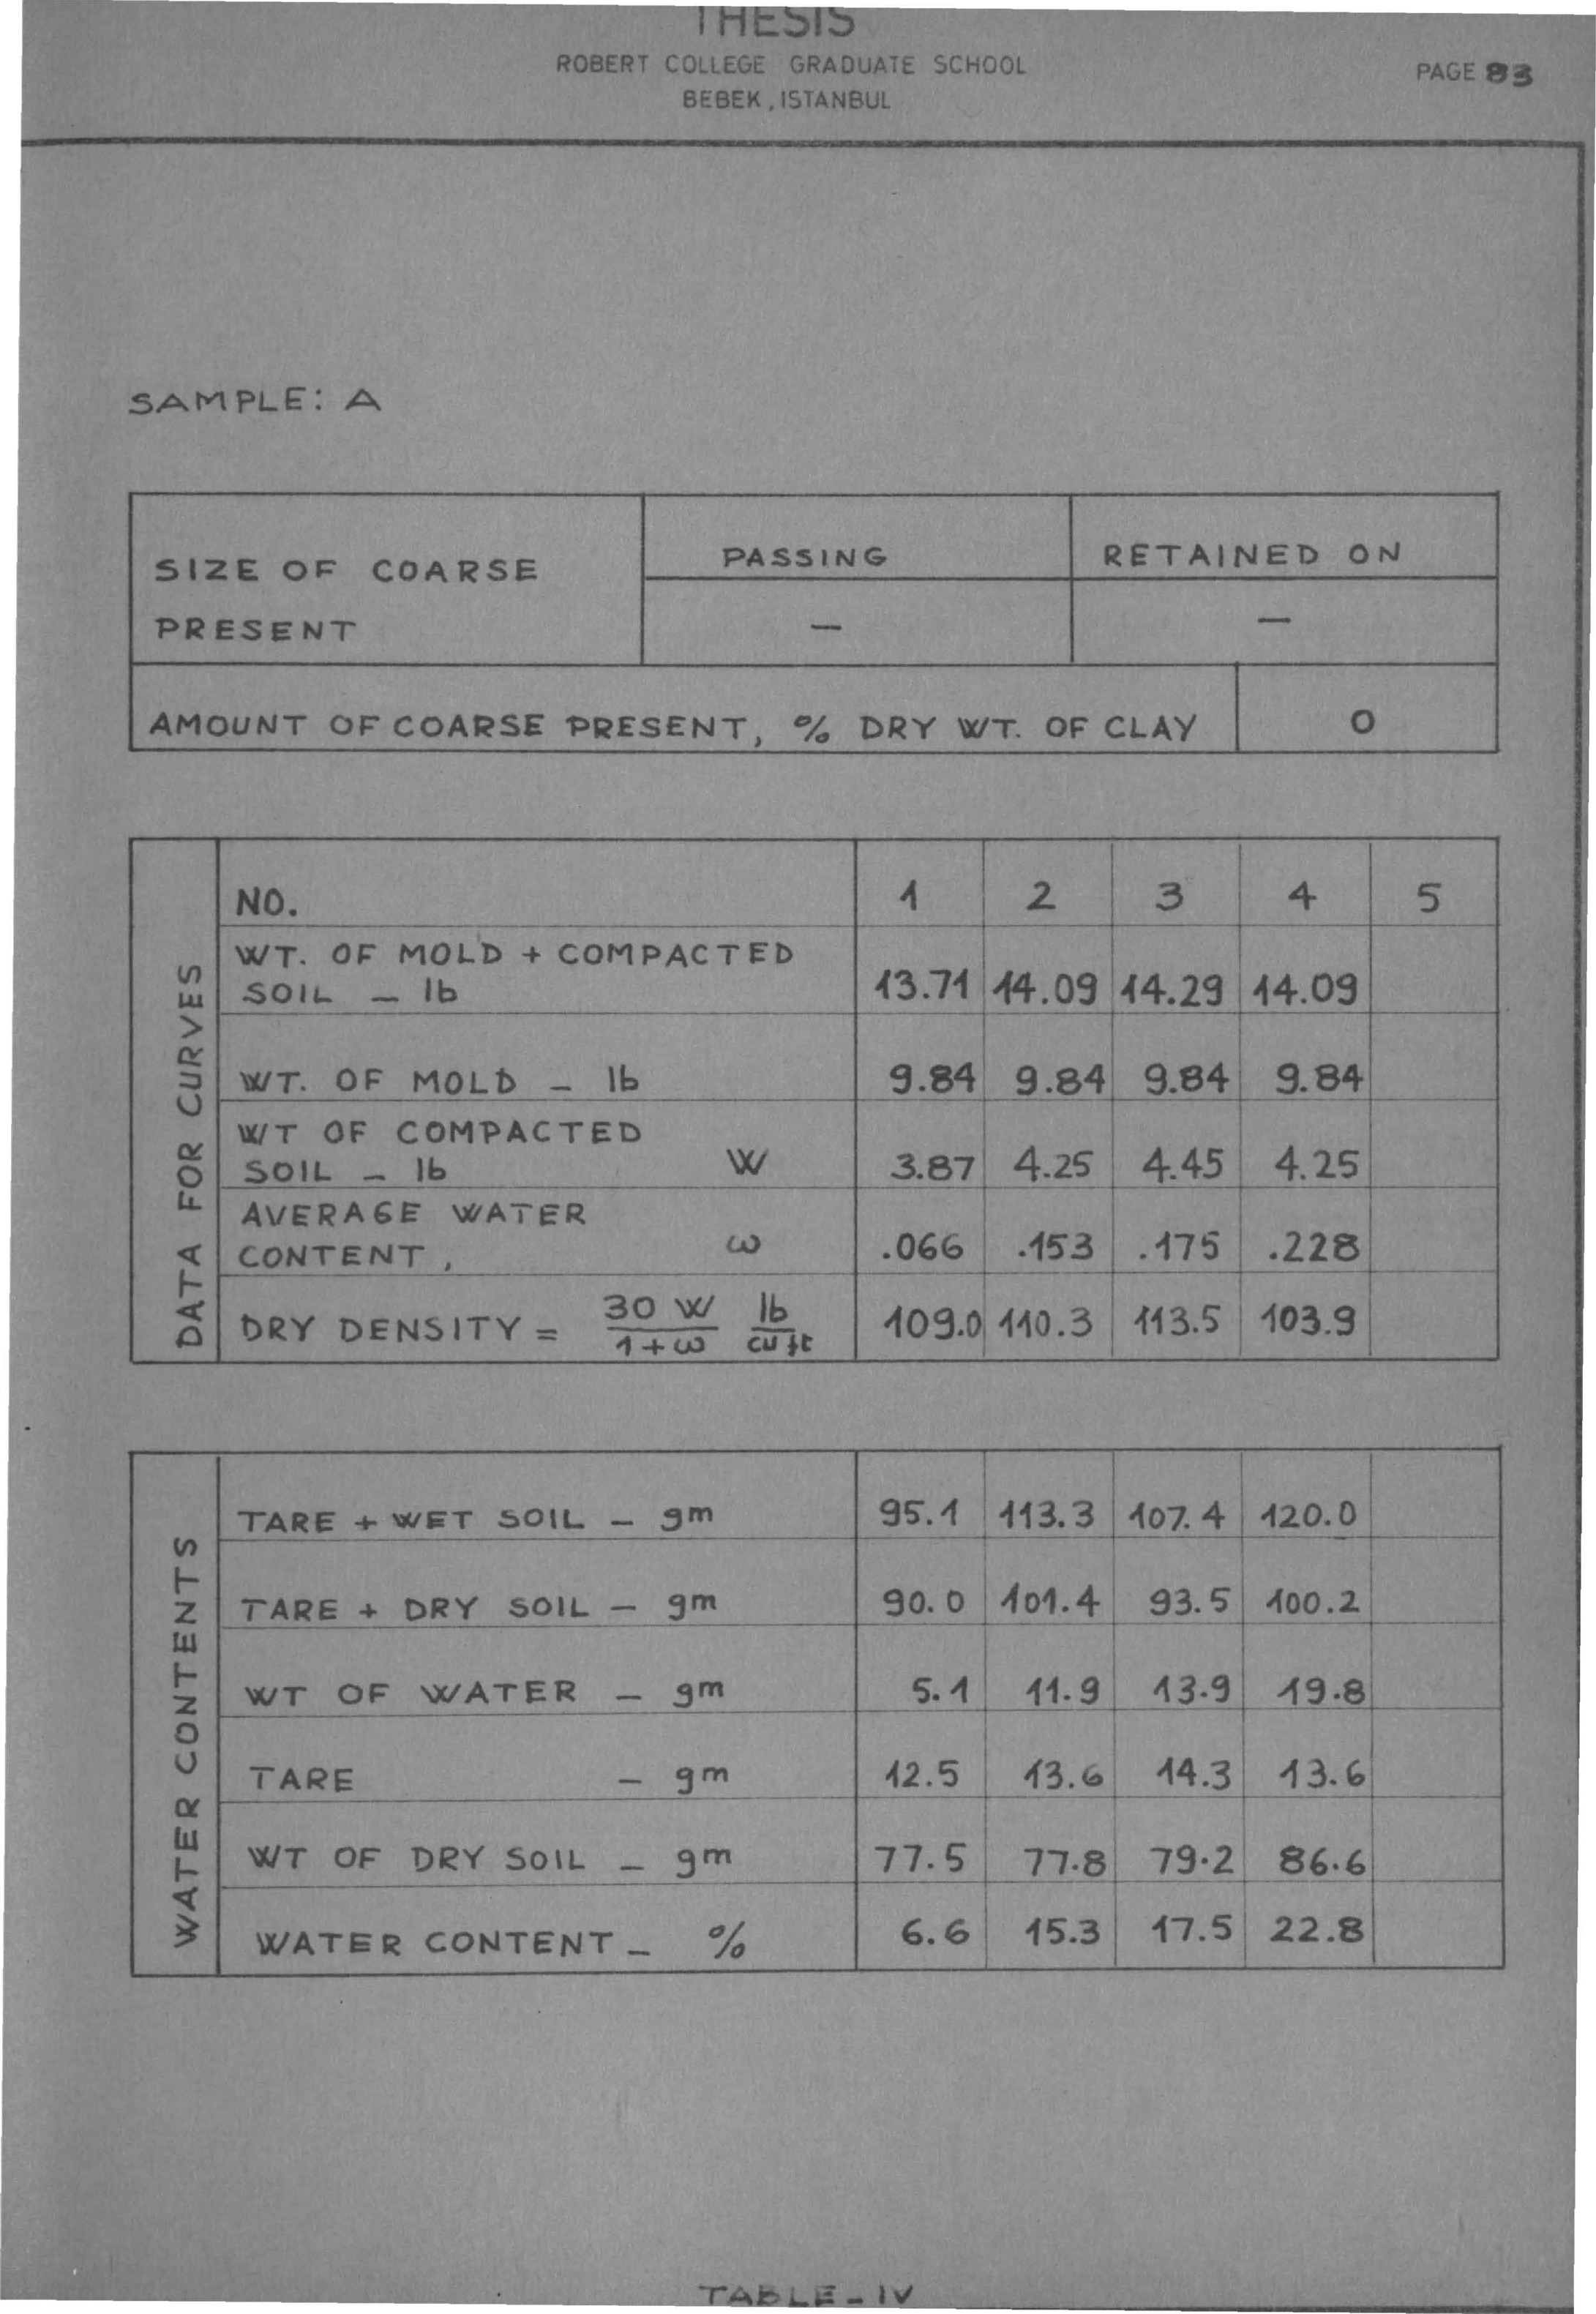 THESIS
ROBERT COLLEGE GRADUATE SCHOOL
BEBEK, ISTANBUL
PAGE 83
SAMPLE: A
SIZE OF COARSE
PRESENT
PASSING
RETAINED ON
—
—
AMOUNT OF COARSE PRESENT, % DRY WT. OF CLAY
0
DATA FOR CURVES
NO. 1 2 3 4 5
WT. OF MOLD + COMPACTED
SOIL – lb 13.71 14.09 14.29 14.09
WT. OF MOLD – lb 9.84 9.84 9.84 9.84
WT OF COMPACTED
SOIL – lb W 3.87 4.25 4.45 4.25
AVERAGE WATER
CONTENT, ω .066 .153 .175 .228
DRY DENSITY = 30 W / 1 + ω lb / cu ft 109.0 110.3 113.5 103.9
WATER CONTENTS
TARE + WET SOIL – gm 95.1 113.3 107.4 120.0
TARE + DRY SOIL – gm 90.0 101.4 93.5 100.2
WT OF WATER – gm 5.1 11.9 13.9 19.8
TARE – gm 12.5 13.6 14.3 13.6
WT OF DRY SOIL – gm 77.5 77.8 79.2 86.6
WATER CONTENT – % 6.6 15.3 17.5 22.8
TABLE – IV